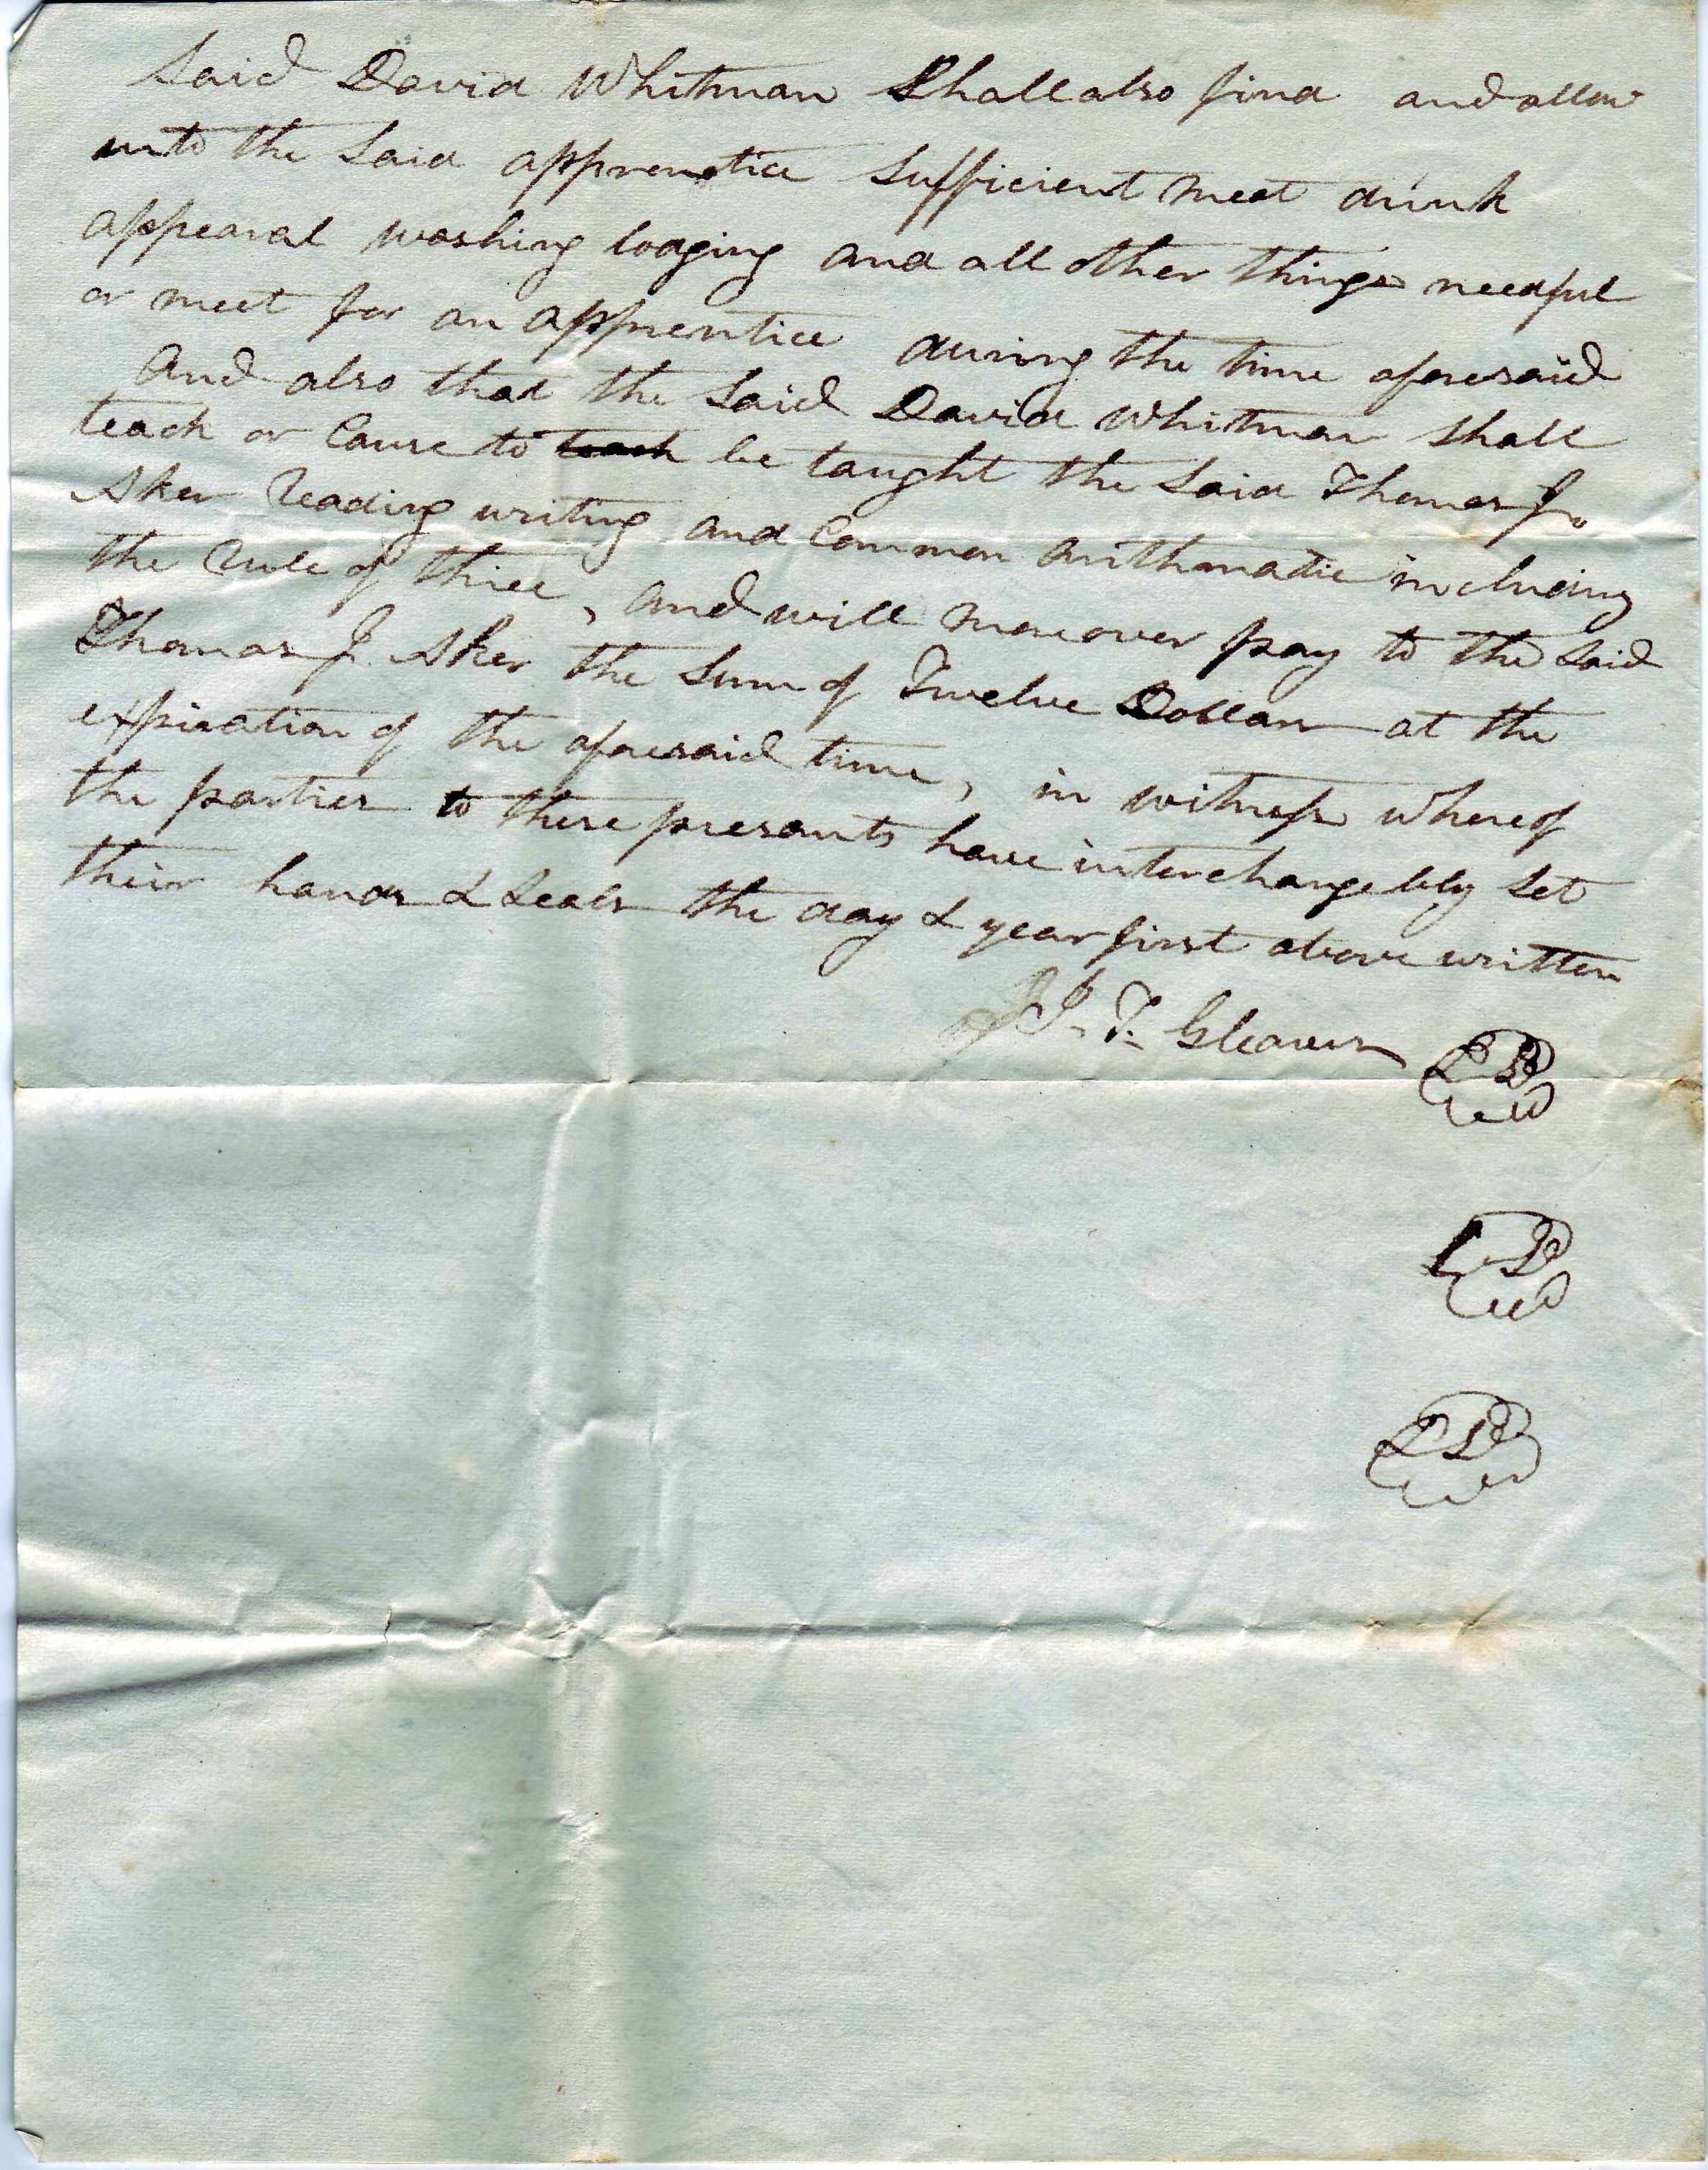 Said David Whitman Shall also find and allow
unto the Said apprentice Sufficient meat drink
appearal washing lodging and all other things needful
or meet for an apprentice during the time aforesaid
And also that the Said David Whitman shall
teach or Cause to teach be taught the Said Thomas J.
Aker reading writing and Common arithmatic including
the rule of three, and will moreover pay to the Said
Thomas J. Aker the Sum of Twelve Dollars at the
expiration of the aforesaid time, in witness whereof
the parties to these presants have interchangebly Set
their hands & Seals the day & year first above written
J. T. Gleaves